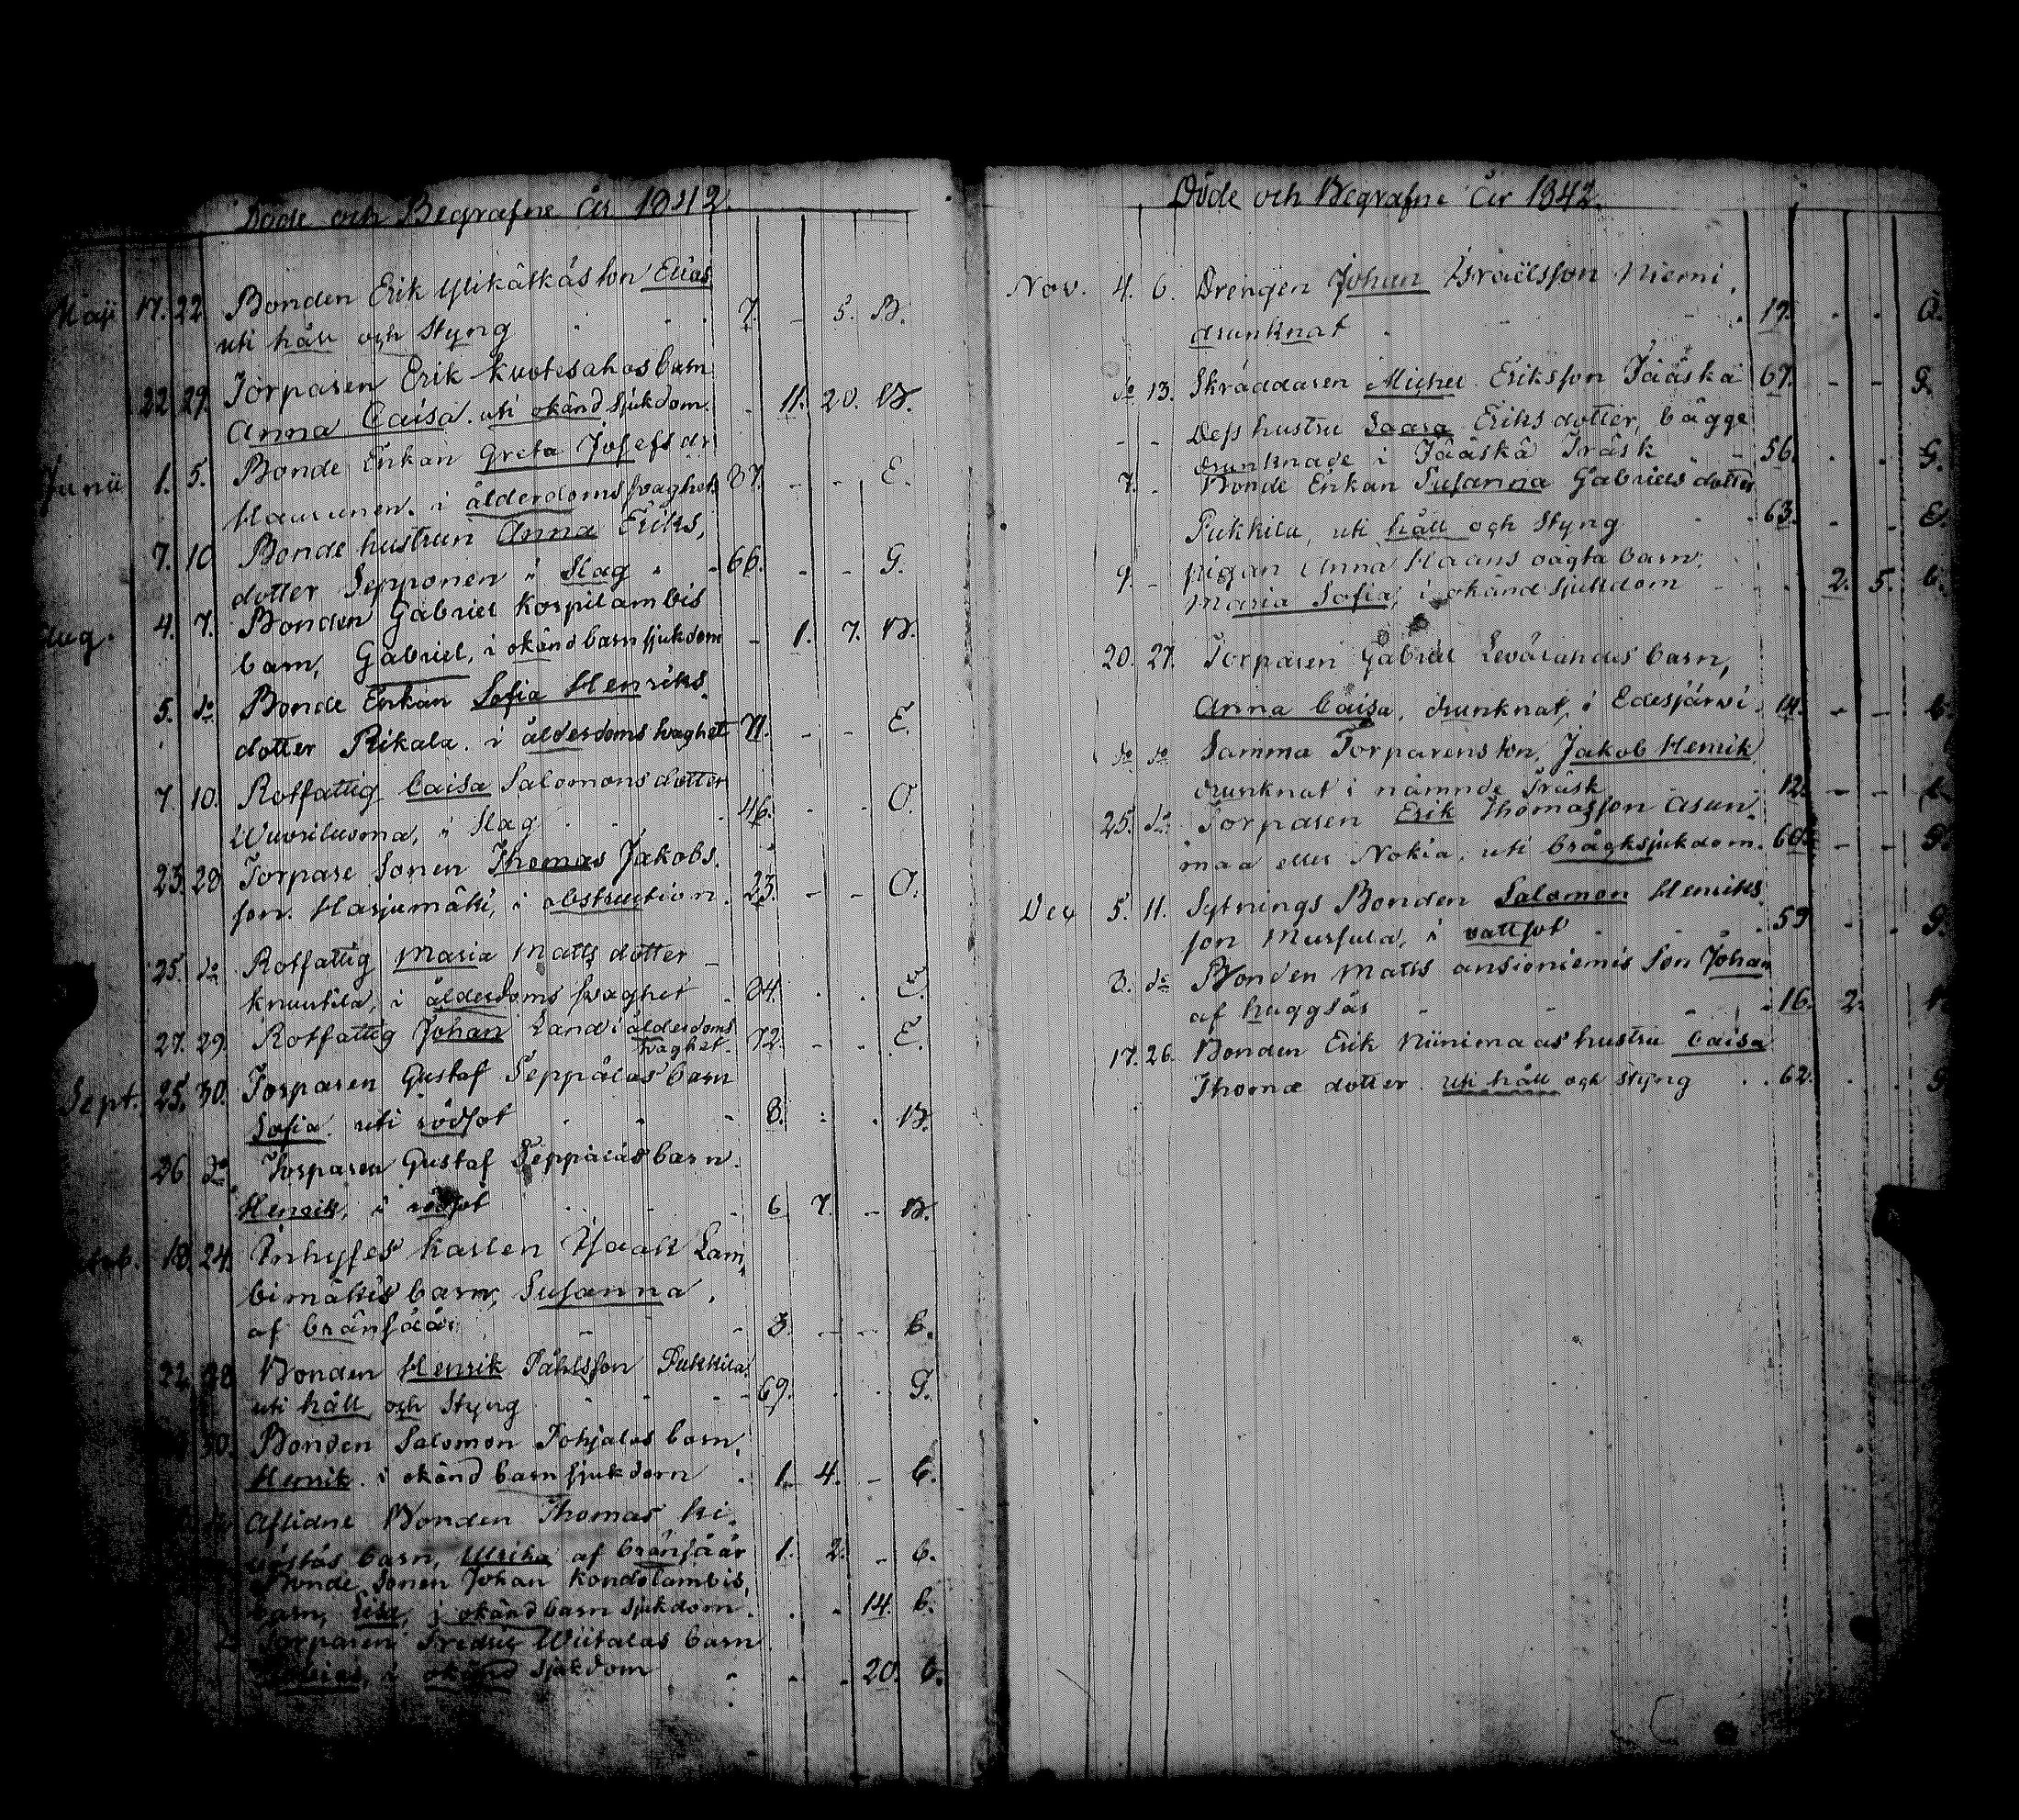 Döde och Begrafne År 1842.
Maji 17. 22. Bonden Erik Ylikälkäs son Elias
uti håll och Styng 7. - 5. B.
22 29. Torparen Erik Kuotesahos barn
Anna Caisa. uti okänd sjukdom. - 11. 20. B.
Junii 1. 5. Bonde Enkan Greta Josefs dr
i ålderdoms svaghet 87. - - E.
7. 10 Bonde hustrun Anna Eriks,
dotter Sepponen i Slag 66. - - G.
Aug. 4. 7. Bonden Gabriel Kospilambis
barn, Gabriel, i okänd barnsjukdom - 1. 7. B.
5. do Bonde Enkan Sofia Henriks
dotter Rikala. i ålderdoms svaghet 71. - - E.
7. 10. Rotfattig Caisa Salomons dotter
Wuoriluoma, i Slag 46. - - O.
23. 28 Torpare Sonen Thomas Jakobs.
son. Harjumäki, i obstruction. 23. - - O.
25. do Rotfattig Maria Matts dotter
Knuutila, i ålderdoms svaghet - 84. - - E.
27. 29. Rotfattig Johan Land i ålderdoms
svaghet. 72. - - E.
Sept. 25. 30. Torparen Gustaf Seppäläs barn
Sofia. uti rödsot 8. - - B.
26 do Torparen Gustaf Seppäläs barn.
Henrik, i rödsot 6. 7. - B.
18. 24. Inhyses Karlen Isaak Lam,
bimäkis barn, Susanna,
af brånsåår 3. - - B.
22. 28 Bonden Henrik Påhlsson Pukkila
uti håll och Styng 69. - - G.
30. Bonden Salomon Pohjalas barn,
Henrik. i okänd barn sjukdom 1. 4. - B.
Aflidne Bonden Thomas Ki,
barn, Ulrika af brånsåår 1. 2. - B.
Bonde Sonen Johan Kondolambis,
barn, Lisa, i okänd barn sjukdom. - - 14. B.
Torparen Fredric Wiitalas barn
i okänd sjukdom - - 20. B.
Döde och Begrafne År 1842.
Nov. 4. 6. Drengen Johan Israëlsson Niemi,
drunknat 19. - - O.
do 13. Skräddaren Michel Eriksson Jääskä 67. - - G.
- - Dess hustru Saara Eriks dotter, bägge
drunknade i Jääskä Träsk 56. - - G.
7. - Bonde Enkan Susanna Gabriels dotter
Pukkila, uti håll och Styng 63. - - E.
9. - pigan Anna Haans oägta barn,
Maria Sofia, i okänd sjukdom - 2. 5. B.
20. 27. Torparen Gabriel Levälahdes barn,
Anna Caisa, drunknat, i Edesjärwi. 14. - - B.
do do Samma Torparens son, Jakob Henrik
drunknat i nämnde Träsk 12. - - B.
25. do Torparen Erik Thomasson Asun,
maa eller Nokia, uti bråcksjukdom. 60. - - G.
Dec 5. 11. Sytnings Bonden Salomon Henriks
son Mursula, i vattsot 59 - - G.
8. do Bonden Matts Ansioniemis Son Johan
af huggsår 16. 2.
17. 26. Bonden Erik Niinimaas hustru Caisa
Thomæ dotter. uti håll och styng 62. - - G.